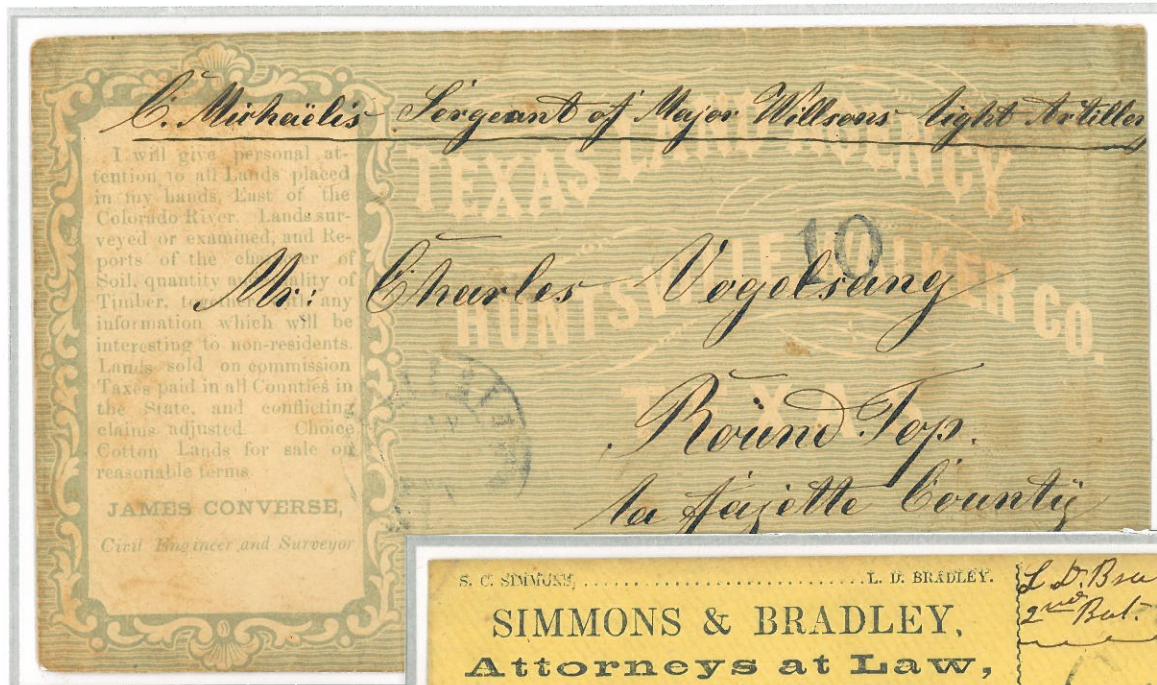 C. Michaëlis Sergeant of Major Willsons light Artillery
TEXAS LAND AGENCY,
HUNTSVILLE WALKER CO.
TEXAS
10
I will give personal at-
tention to all Lands placed
in my hands, East of the
Colorado River. Lands sur-
veyed or examined, and Re-
ports of the character of
Soil, quantity and quality of
Timber, together with any
information which will be
interesting to non-residents.
Lands sold on commission
Taxes paid in all Counties in
the State, and conflicting
claims adjusted. Choice
Cotton Lands for sale on
reasonable terms.
JAMES CONVERSE,
Civil Engineer and Surveyor
Mr: Charles Vogelsang
Round Top.
la fajette County
S. C. SIMMONS, L. D. BRADLEY.
SIMMONS & BRADLEY,
Attorneys at Law,
L. D. Bra
2nd Bat.